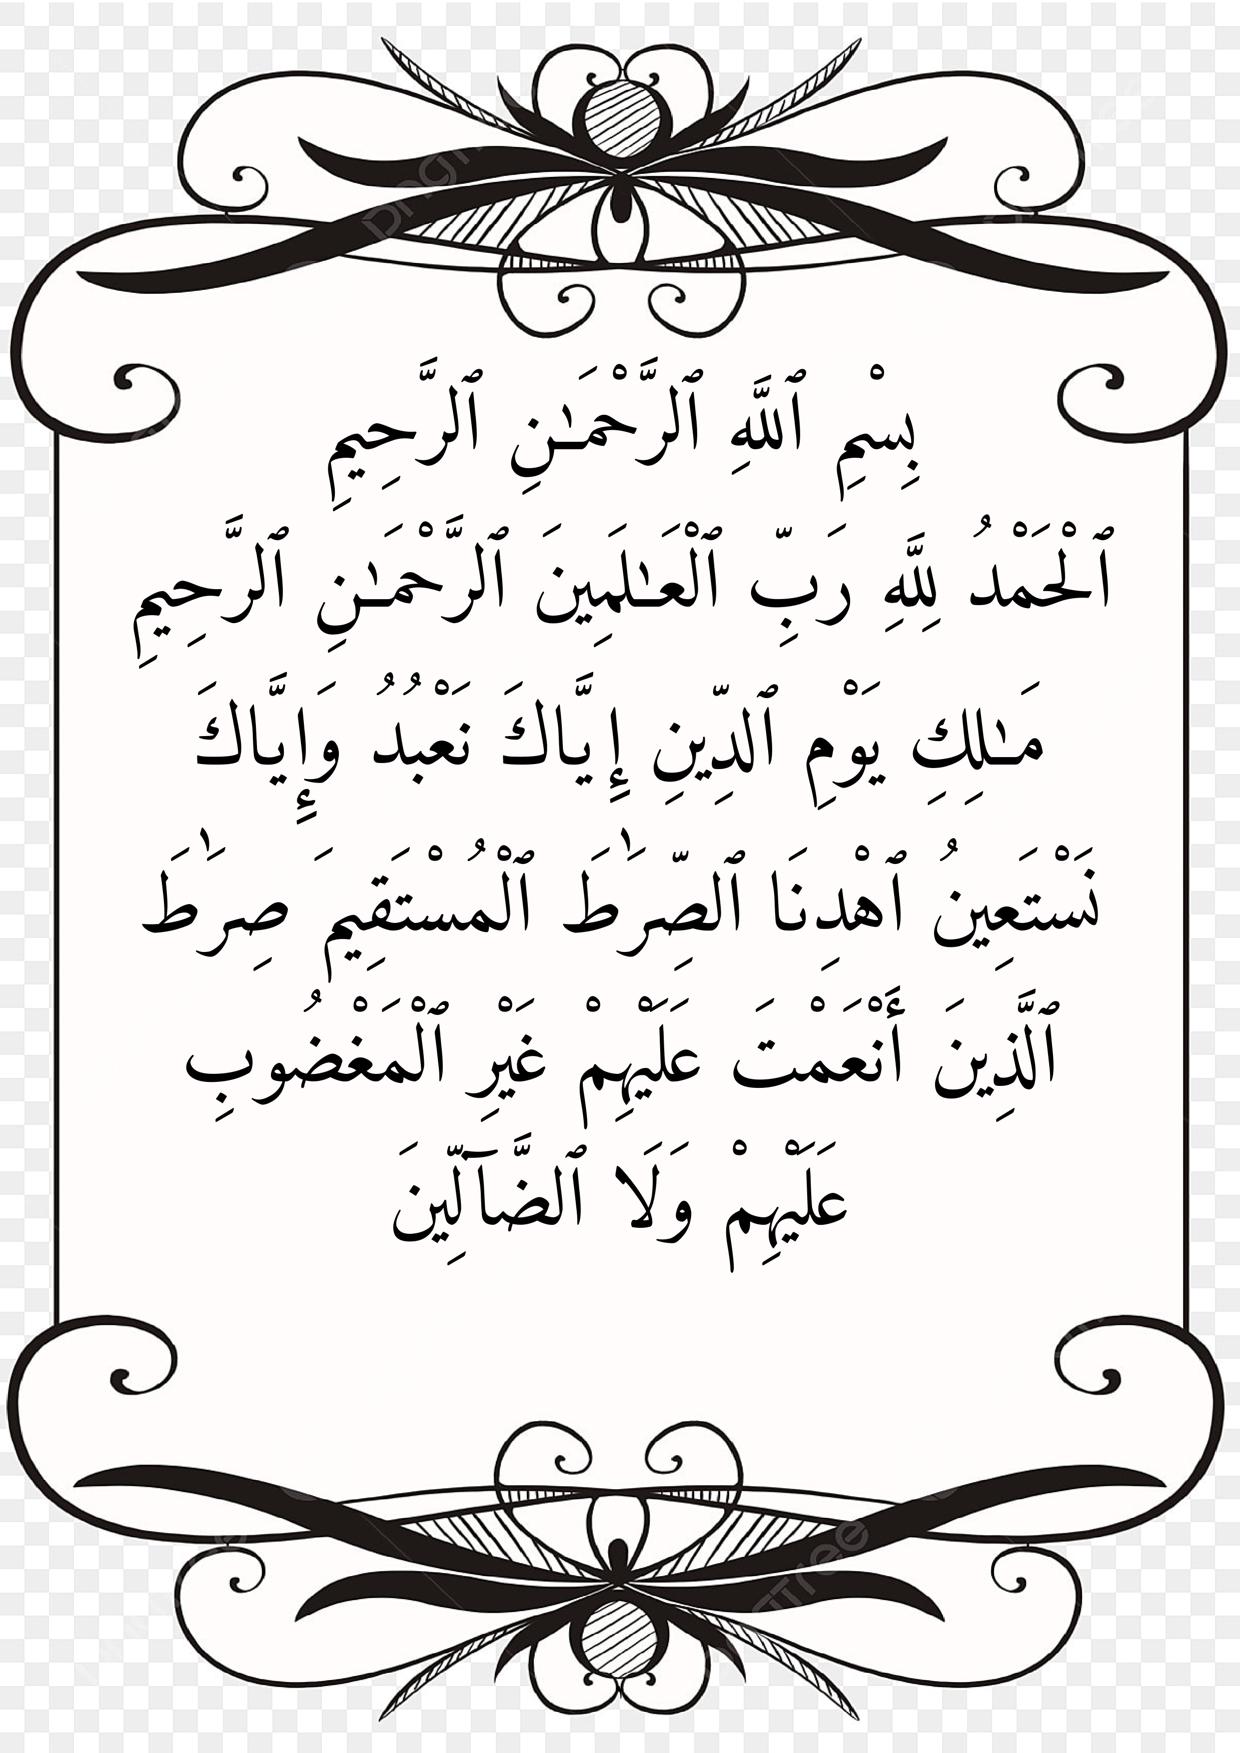 بِسْمِ ٱللَّهِ ٱلرَّحْمَـٰنِ ٱلرَّحِيمِ
ٱلْحَمْدُ لِلَّهِ رَبِّ ٱلْعَـٰلَمِينَ ٱلرَّحْمَـٰنِ ٱلرَّحِيمِ
مَـٰلِكِ يَوْمِ ٱلدِّينِ إِيَّاكَ نَعْبُدُ وَإِيَّاكَ
نَسْتَعِينُ ٱهْدِنَا ٱلصِّرَٰطَ ٱلْمُسْتَقِيمَ صِرَٰطَ
ٱلَّذِينَ أَنْعَمْتَ عَلَيْهِمْ غَيْرِ ٱلْمَغْضُوبِ
عَلَيْهِمْ وَلَا ٱلضَّآلِّينَ